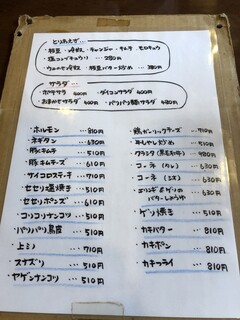 とりあえず…
・枝豆・冷奴・チャンジャ・キムチ・モロキュウ
・塩コンブキュウリ … 280円
・ウルメイワシ 枝豆バター炒め … 380円
サラダ…
・ポテサラ 400円 ・ダイコンサラダ 400円
・おまかせサラダ 600円 ・パリパリ麺サラダ 400円
・ホルモン … 810円
・ネギタン … 810円
・豚キムチ … 510円
・豚キムチーズ … 610円
・サイコロステーキ … 710円
・セセリ塩焼き … 510円
・セセリポンズ … 610円
・コリコリナンコツ … 510円
・パリパリ鳥皮 … 510円
・上ミノ … 710円
・スナズリ … 510円
・ヤゲンナンコツ … 510円
・鶏ガーリックチーズ … 910円
・牛しゃしゃ炒め … 510円
・クラシタ(黒毛和牛) … 980円
・コーネ(タレ) … 630円
・コーネ(ネギ) … 630円
・エリンギとゲソの
バターしょうゆ … 510円
・ゲソ焼き … 510円
・カキバター … 810円
・カキポン … 810円
・カキフライ … 810円